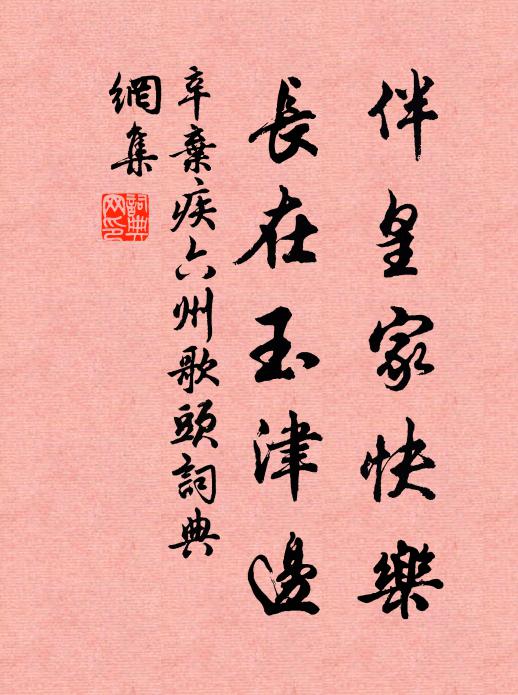 伴皇家快樂
長在玉津邊
辛棄疾六州歌頭詞典
網集
詞典
网印